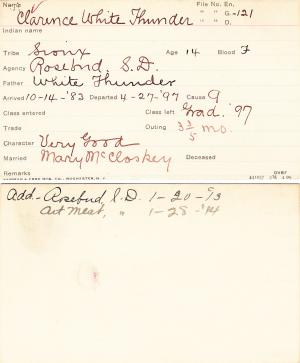 Name Clarence White Thunder File No. En.
G. -121
Indian name
G.
Tribe Sioux Age 14 Blood F
Agency Rosebud, S.D.
Father White Thunder
Arrived 10-14-'83 Departed 4-27-'97 Cause G
Class entered Class left Grad. '97
Trade Outing mo.
Character Very Good
Married Mary McCloskey Deceased
Remarks
over
Add.- Rosebud, S.D. 1-20-'13
Art Meat, " 1-28-'14